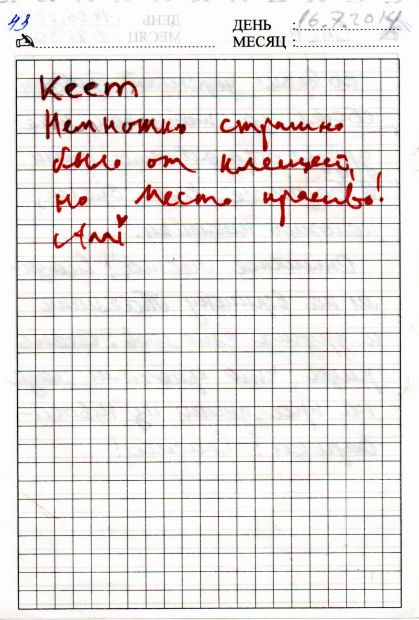 43
ДЕНЬ : 16.7.2014
МЕСЯЦ :
Кеет
Немножко страшно
было от клещей,
но место красиво!